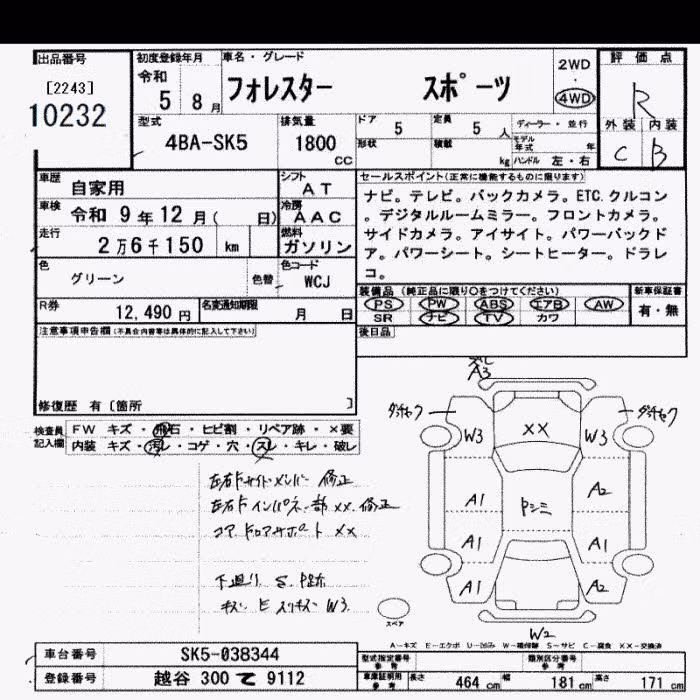 出品番号
[2243]
10232
初度登録年月
令和
5 8月
車名・グレード
フォレスター スポーツ
2WD
4WD
評価点
R
外装 内装
C B
型式
4BA-SK5
排気量
1800
CC
ドア
5
定員
5 人
ディーラー・並行
形状
積載
kg
モデル年式 年
ハンドル 左・右
車歴
自家用
シフト
AT
車検
令和 9年12月( 日)
冷房
AAC
走行
2万6千150 km
燃料
ガソリン
色
グリーン
色替
色コード
WCJ
R券
12,490 円
名変通知期限
月 日
セールスポイント(正常に機能するものに限ります)
ナビ。テレビ。バックカメラ。ETC.クルコン
。デジタルルームミラー。フロントカメラ。
サイドカメラ。アイサイト。パワーバックド
ア。パワーシート。シートヒーター。ドラレ
コ。
装備品 (純正品に限り○をつけてください)
PS PW ABS エアB AW
SR ナビ TV カワ
新車保証書
有・無
注意事項申告欄(不具合内容等は具体的に記入して下さい)
後日品
修復歴 有〔箇所 〕
検査員記入欄
FW キズ・飛石・ヒビ割・リペア跡・×要
内装 キズ・汚レ・コゲ・穴・スレ・キレ・破レ
左右Fサイドメンバー 修正
左右Fインパネ一部 XX. 修正
コアサポート XX
下廻り S.
キズ E スリキズ W3
A3
W3
XX
W3
A1
A2
A1
A1
A1
A2
W2
スペア
A−キズ E−エクボ U−凹み W−補修跡 S−サビ C−腐食 XX−交換済
車台番号
SK5-038344
登録番号
越谷 300 て 9112
型式指定番号
参考
類別区分番号
参考
車庫証明用
参考
長さ 464 cm 幅 181 cm 高さ 171 cm